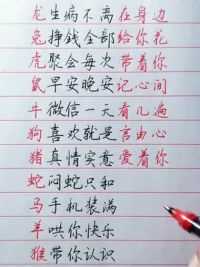 龙生病不离在身边
兔挣钱全部给你花
虎聚会每次带着你
鼠早安晚安记心间
牛微信一天看几遍
狗喜欢就是言由心
猪真情实意爱着你
蛇闷蛇只和
马手机装满
羊哄你快乐
猴带你认识